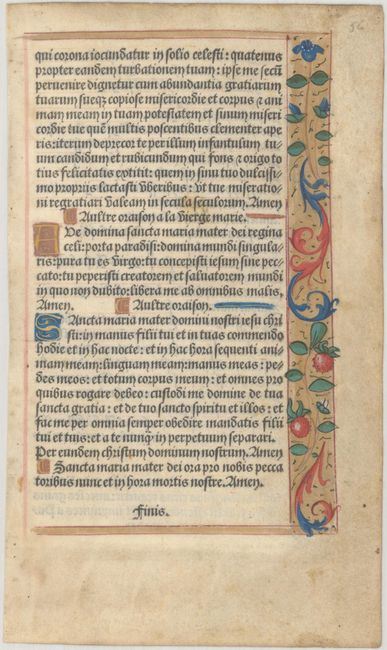 56
qui corona iocundatur in solio celesti: quatenus
propter eandem turbationem tuam: ipse me secū
peruenire dignetur cum abundantia gratiarum
tuarum sueqȝ copiose misericordie et corpus ⁊ ani
mam meam in tuam potestatem et sinum miseri
cordie tue quē multis poscentibus clementer ape
ris: iterum deprecor te per illum infantulum tu⸗
um candidum et rubicundum qui fons ⁊ origo to
tius felicitatis extitit: quem in sinu tuo dulcissi⸗
mo propriis lactasti vberibus: vt tue miseratio⸗
ni regratiari valeam in secula seculorum. Amen
Aultre oraison a la vierge marie.
AVe domina sancta maria mater dei regina
celi: porta paradisi: domina mundi singula⸗
ris: pura tu es virgo: tu concepisti iesum sine pec⸗
cato: tu peperisti creatorem et saluatorem mundi
in quo non dubito: libera me ab omnibus malis,
Amen. Aultre oraison.
SAncta maria mater domini nostri iesu chri
sti: in manus filii tui et in tuas commendo
hodie et in hac nocte: et in hac hora sequenti ani⸗
mam meam: linguam meam: manus meas: pe⸗
des meos: et totum corpus meum: et omnes pro
quibus rogare debeo: custodi me domine de tua
sancta gratia: et de tuo sancto spiritu et illos: et
fac me per omnia semper obedire mandatis filii
tui et tuis: et a te nunqȝ in perpetuum separari.
Per eundem christum dominum nostrum. Amen
Sancta maria mater dei ora pro nobis pecca
toribus nunc et in hora mortis nostre. Amen.
Finis.